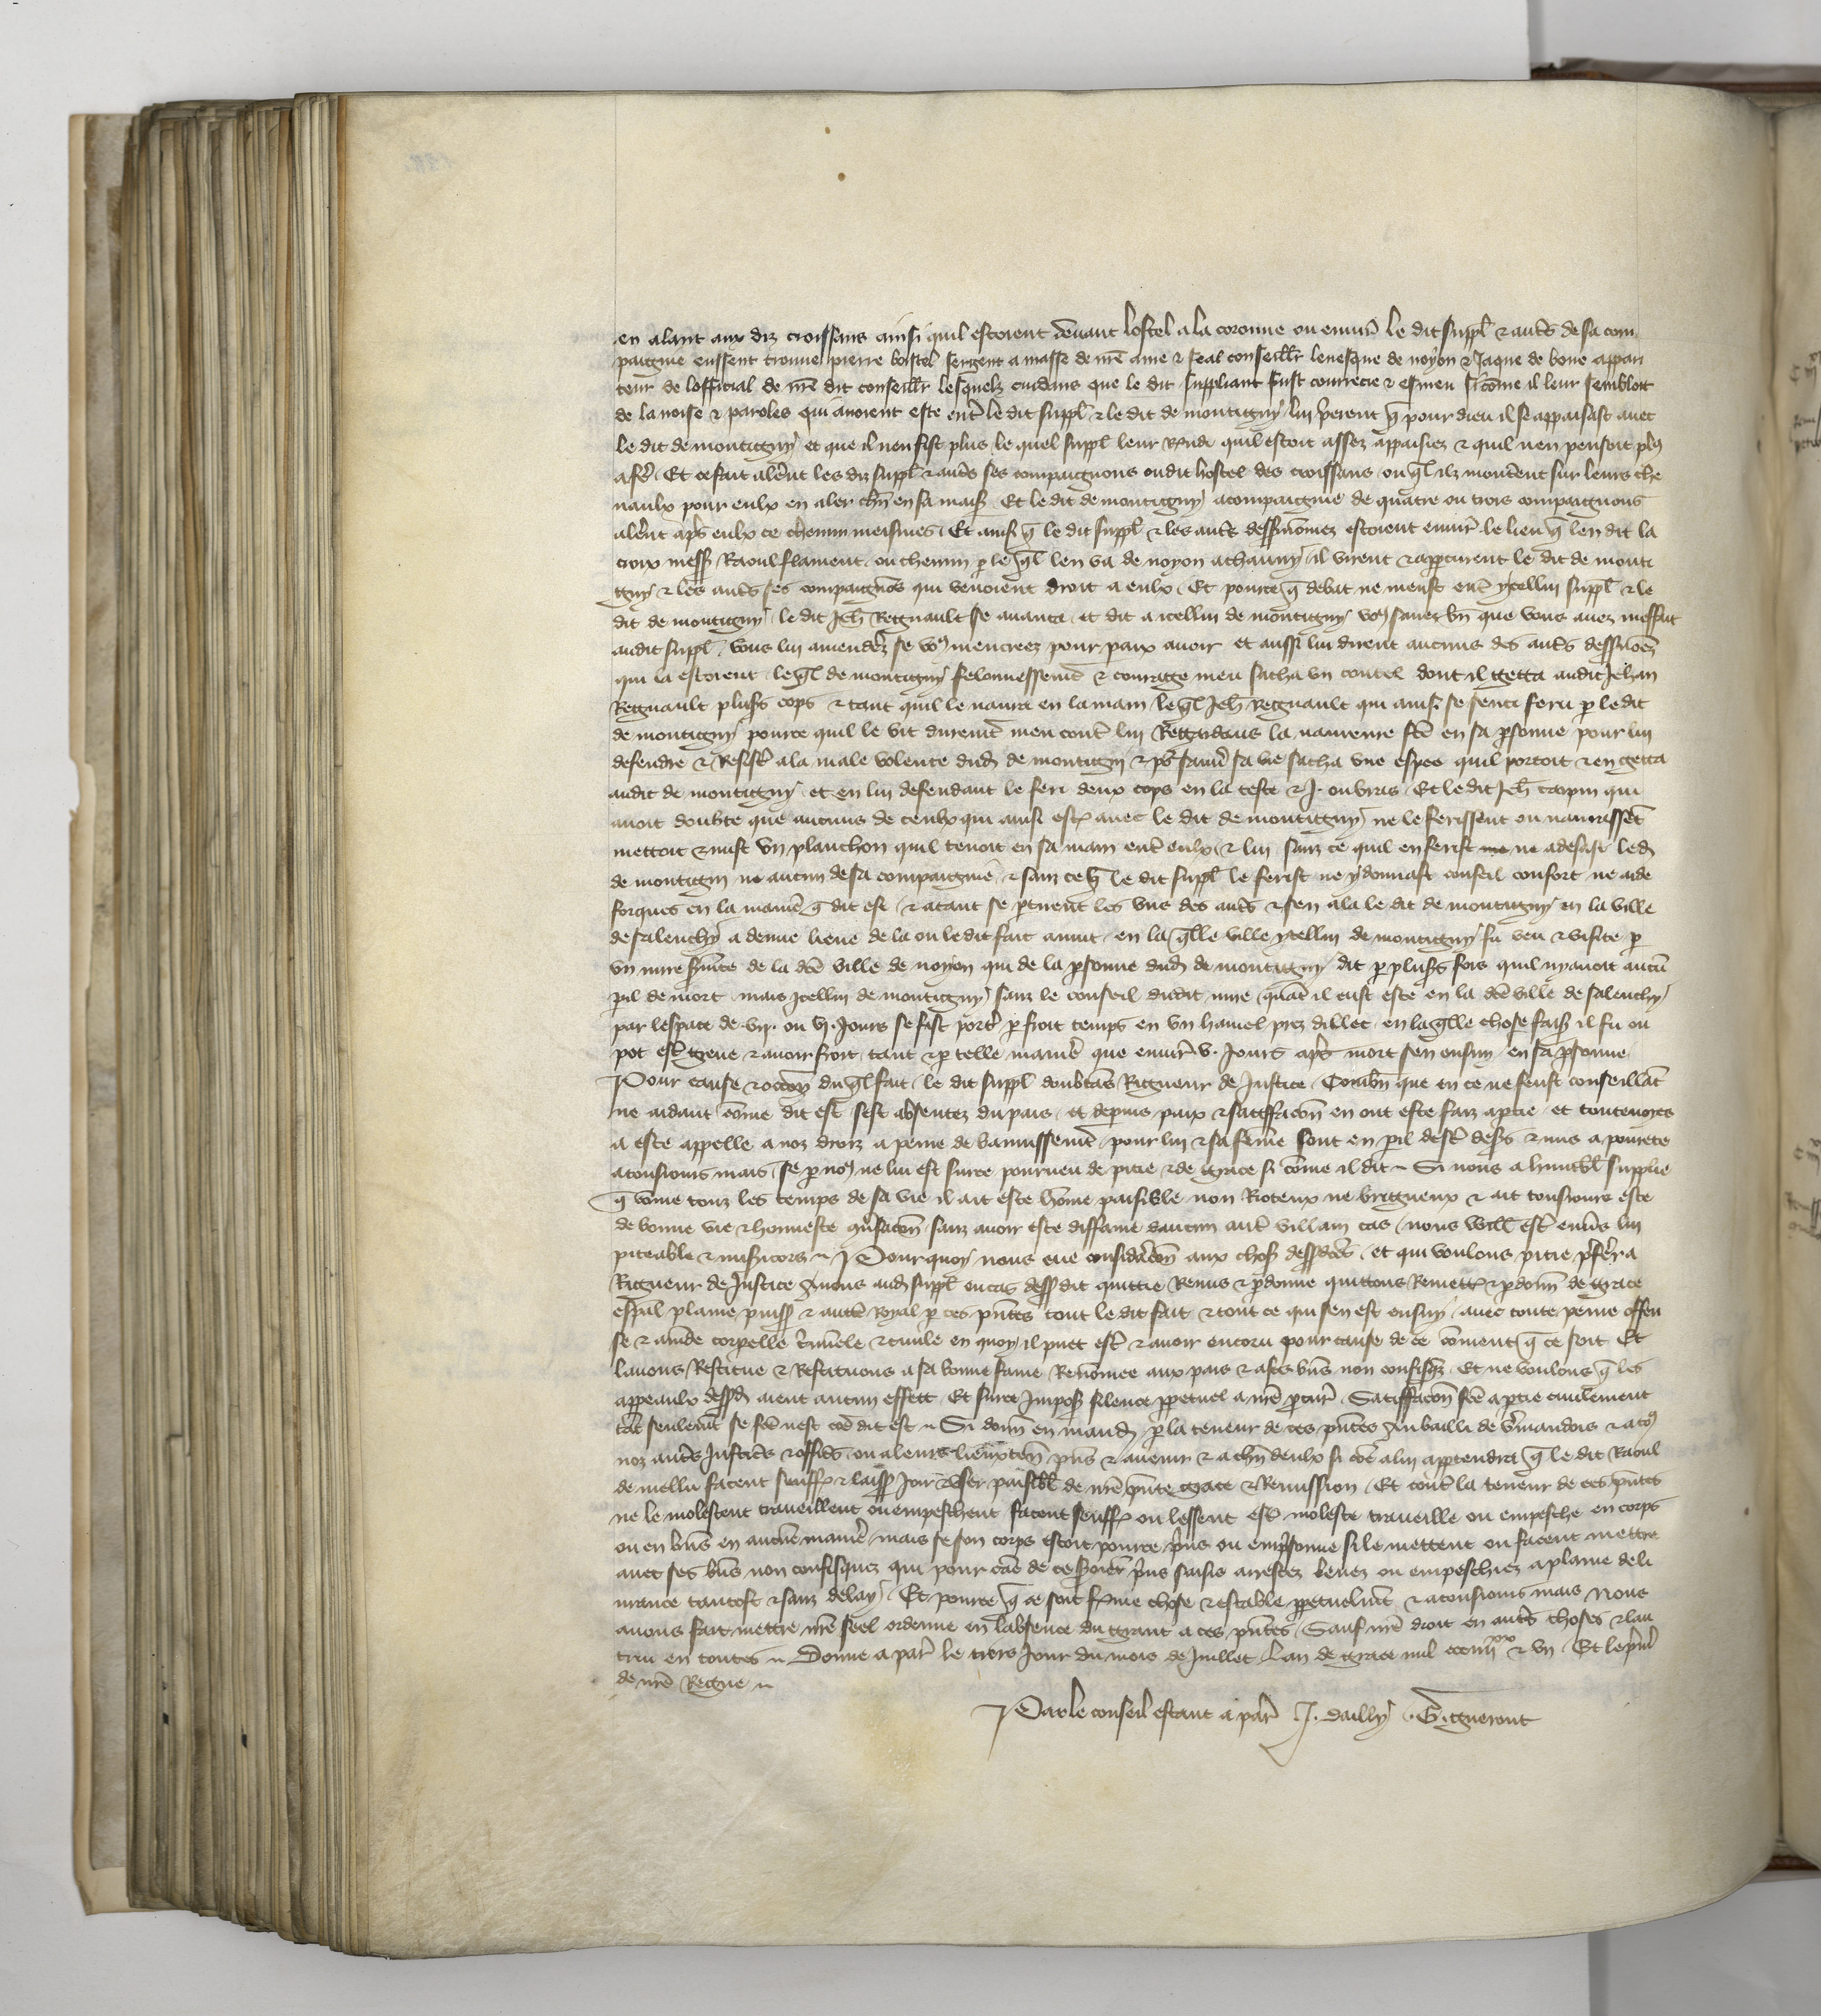 en alant aux diz croissans ainsi quil estoient deuant lostel a la coronne ou enuirō le dit suppl̄ & autrēs de sa com
paignie eussent trouue pierre bostel sergent a masse de nrē ame & feal conseillr̄ leuesque de noyon & Jaque de boue appari
teur de lofficial de nrē dit conseillr̄ lesquelz cuidans que le dit suppliant fust courrecie & esmeu si cōme il leur sembloit
de la noise & paroles qui auoient este entrē le dit suppl̄ & le dit de montigny lui prierent q̄ pour dieu il se appaisast auec
le dit de montigny et que il nen fist plus le quel suppl̄ leur respondi quil estoit assez appaisiez & quil nen pensoit plus
a fērē Et ce fait alerēnt les diz suppl̄ & autrēs ses compaignons oudit hostel des croissans ou q̄l ilz monterēnt sur leurs che
uaulx pour eulx en aler chūn en sa maison Et le dit de montigny acompaignie de quatre ou trois compaignons
alerēnt aprēs eulx ce chemin meismes Et ainsi q̄ le dit suppl̄ & les autrēs dessusnōmez estoient enuirō le lieu q̄ len dit la
croix mess̄ Raoul flament ou chemin p le q̄l len va de noyon a chauny il virent & apperceurent le dit de monti
gny & les autrēs ses compaignōs qui venoient droit a eulx Et pource q̄ debat ne meust entrē ycellui suppl̄ & le
dit de montigny le dit Jeh̄ Regnault se auanca et dit a icellui de montigny vous sauez bn̄ que vous auez meffait
audit suppl̄ vous lui amenderez se vous men creez pour paix auoir et aussi lui dirent aucuns des autrēs dessusnōmez
qui la estoient le q̄l de montigny felonnessemēt & couraige meu sacha vn coutel dont il getta audit Jehan
Regnault plusrs cops & tant quil le naura en la main le q̄l Jeh̄ Regnault qui ainsi se senti feru p le dit
de montigny pource quil le vit durement meu contrē lui Regardans la naureure fcē en sa psonne pour lui
defendre & Resistr̄ a la male volente dud̄ de montigny & pr̄ sauuer sa vie sacha vne espee quil portoit & en getta
audit de montigny et en lui defendant le feri deux cops en la teste & J. ou bras Et le dit Jeh̄ carpin qui
auoit doubte que aucuns de ceulx qui ainsi estoient auec le dit de montigny ne le ferissent ou naurassent
mettoit & mist vn planchon quil tenoit en sa main entrē eulx & lui sanz ce quil en ferist ne adesast led̄
de montigny ne aucun de sa compaignie & sanz ce q̄ le dit suppl̄ le ferist ne y donnast conseil confort ne aide
forques en la manierē q̄ dit est & atant se partirēnt les vns des autrēs & sen ala le dit de montigny en la ville
de salenchy a demie lieue de la ou le dit fait auint en la q̄lle ville ycellui de montigny fu veu & visite p
vn mire jure de la dcē ville de noyon qui de la psonne dud̄ de montigny dit p plusrs fois quil ny auoit aucū
pil de mort mais Jcellui de montigny sanz le conseil dudit mire quāt il eust este en la dcē ville de salenchy
par lespace de .vij. ou vj. Jours se fist porter p froit temps en vn hamel prez dillec en la q̄lle chose faisant il fu ou
pot estrē greue & auoir froit tant & p telle manierē que enuirō v. Jours aprēs mort sen ensuy en sa psonne
Pour cause & occōn du q̄l fait le dit suppl̄ doubtās Rigueur de Justice Combn̄ que en ce ne feust conseillāt
ne aidant cōme dit est sest absentez du pais et depuis paix & satisfaccōn en ont este faiz a ptie et toutesuoies
a este appelle a noz droiz a peine de bannissemēt pour lui & sa fēme sont en pil destrē desers & mis a pourete
a tousiours mais se p nous ne lui est surce pourueu de pitie & de grace si cōme il dit Si nous a humbl̄ supplie
q̄ cōme touz les temps de sa vie il ait este hōme paisible non Rioteux ne brigueux & ait tousiours este
de bonne vie & honneste qūsacōn sanz auoir este diffame daucun autrē villain cas nous vueill̄ estrē enuers lui
piteable & misericors Pourquoy nous eue consideracōn aux choses dessus dcēs et qui voulons pitie preferer a
Rigueur de Justice Auons aud̄ suppl̄ ou cas dess̄ dit quittie Remis & pdonne quittons Remettons & pdonn̄ de grace
espal̄ plaine puiss̄ & auctē Royal p ces pn̄tes tout le dit fait & tout ce qui sen est ensuy auec toute peine offen
se & amēde corpelle criminele & ciuile en quoy il puet estrē & auoir encoru pour cause de ce cōment q̄ ce soit Et
lauons Restitue & Restituons a sa bonne fame Renōmee aux pais & a ses biens non confisqz Et ne voulons q̄ les
appeaulx dessd̄ aient aucun effett Et surce Imposons silence ppetuel a nrē pcur̄ Satisfaccōn fcē a ptie ciuilement
tāt seulemēt se fcē nest cōe dit est Si donn̄ en mand̄ p la teneur de ces pn̄tes Au bailli de Vermandois & a tous
noz autrēs Justicrs & officrs ou a leurs lieuxten̄ pn̄s & auenir & a chūn deulx si cōe a lui appartendra q̄ le dit Raoul
de mellu facent seuffrēnt & laiss̄ Joir & vser paisibl̄ de nrē pn̄te grace & Remission Et contrē la teneur de ces pn̄tes
ne le molestent traueillent ou empeschent facent seuffrēnt ou lessent estrē moleste traueille ou empesche en corps
ou en biens en aucune manierē mais se son corps estoit pource pris ou empsonne si le mettent ou facent mettre
auec ses biens non confisquez qui pour cāe de ce seroiēt pris saisis arrestez leuez ou empeschiez a plaine deli
urance tantost & sanz delay Et pource q̄ ce soit ferme chose & estable ppetuelmt̄ & a tousiours mais nous
auons fait mettre nrē seel ordenne en labsence du grant a ces pn̄tes Sauf nrē droit en autrēs choses & lau
trui en toutes Donne a par̄ le tiers Jour du mois de Juillet Lan de grace mil ccciiijxx & vn Et le prīer
de nrē Regne
Par le conseil estant a par̄ J. dailly G. gueront